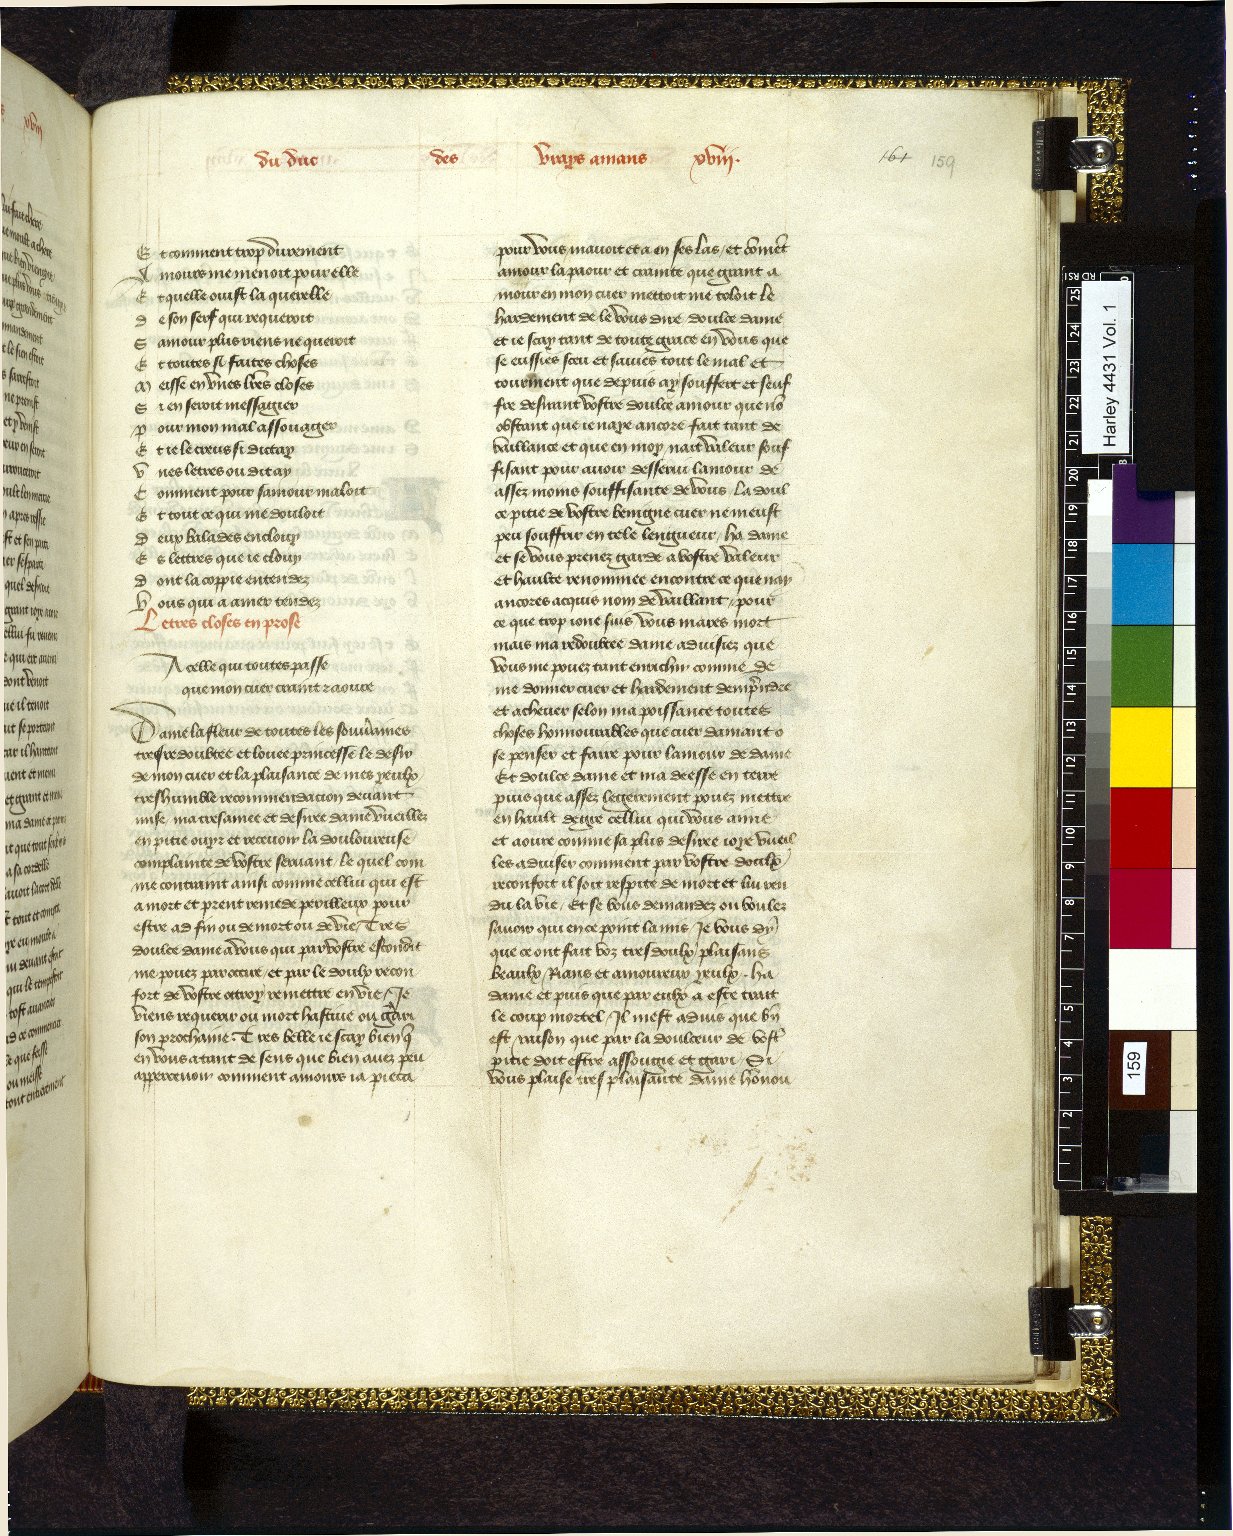 du duc des vrays amans xviii.
161 159
Et comment trop durement
Amours me menoit pour elle
Et quelle ouist la querelle
de son serf qui requeroit
S amour plus riens ne queroit
Et toutes si faites choses
Meisse en unes lres closes
Si en seroit messagier
pour mon mal assouagier
Et ie le creus si dictay
Unes letres ou ditay
Comment pour samour maloit
Et tout ce qui me douloit
Deux balades encloux
Es lettres que ie cloux
Dont la coppie entendez
Vous qui a amer tendez
Letres closes en prose
A celle qui toutes passe
que mon cuer craint z aoure
Dame la fleur de toutes les souuraines
tresredoubtee et louee princesse le desir
de mon cuer et la plaisance de mes yeulx
treshumble recommendacion deuant
mise ma tresamee et desiree dame vueillez
en pitie ouyr et receuoir la douloureuse
complainte de vostre seruant le quel com
me contraint ainsi comme cellui qui est
a mort et prent remede perilleux pour
estre ad fin ou de mort ou de vie Tres
doulce dame a vous qui par vostre escondit
me pouez par occire et par le doulx recon
fort de vostre ottroy remettre en vie Je
viens requerir ou mort hastiue ou gari
son prochaine. Tres belle ie scay bien q
en vous a tant de sens que bien auez peu
apperceuoir comment amours ia pieca
pour vous mauoit et a en ses las et comet
amour la paour et crainte que grant a
mour en mon cuer mettoit me toloit le
hardement de le vous dire doulce dame
et ie scay tant de toute grace en vous que
se eussies sceu et sauies tout le mal et
tourment que depuis ay souffert et seuf
fre desirant vostre doulce amour que no
obstant que ie naye ancore fait tant de
vaillance et que en moy nait valeur souf
fisant pour auoir desserui lamour de
assez moins souffisante de vous La doul
ce pitie de vostre benigne cuer ne meust
peu souffrir en tele lengueur ha dame
et se vous prenez garde a vostre valeur
et haulte renommee encontre ce que nay
ancores acquis nom de vaillant pour
ce que trop ione suis vous mares mort
mais ma redoubtee dame aduisiez que
vous me pouez tant enrichir comme de
me donner cuer et hardement dempredre
et acheuer selon ma poissance toutes
choses honnourables que cuer damant o
se penser et faire pour lamour de dame
Et doulce dame et ma deesse en terre
puis que assez legierement pouez mettre
en hault degre cellui qui vous aime
et aoure comme sa plus desiree ioye vueil
les aduiser comment par vostre doulx
reconfort il soit respite de mort et lui ren
du la vie Et se vous demandez ou voulez
sauoir qui en ce point la mis Je vous dy
que ce ont fait voz tres doulx plaisans
beaulx Rians et amoureux yeulx. ha
dame et puis que par eulx a este trait
le coup mortel Il mest aduis que bn
est raison que par la doulceur de vostr
pitie doit estre assougie et gari Si
vous plaise tres plaisante dame honou
Harley 4431 Vol. 1
159